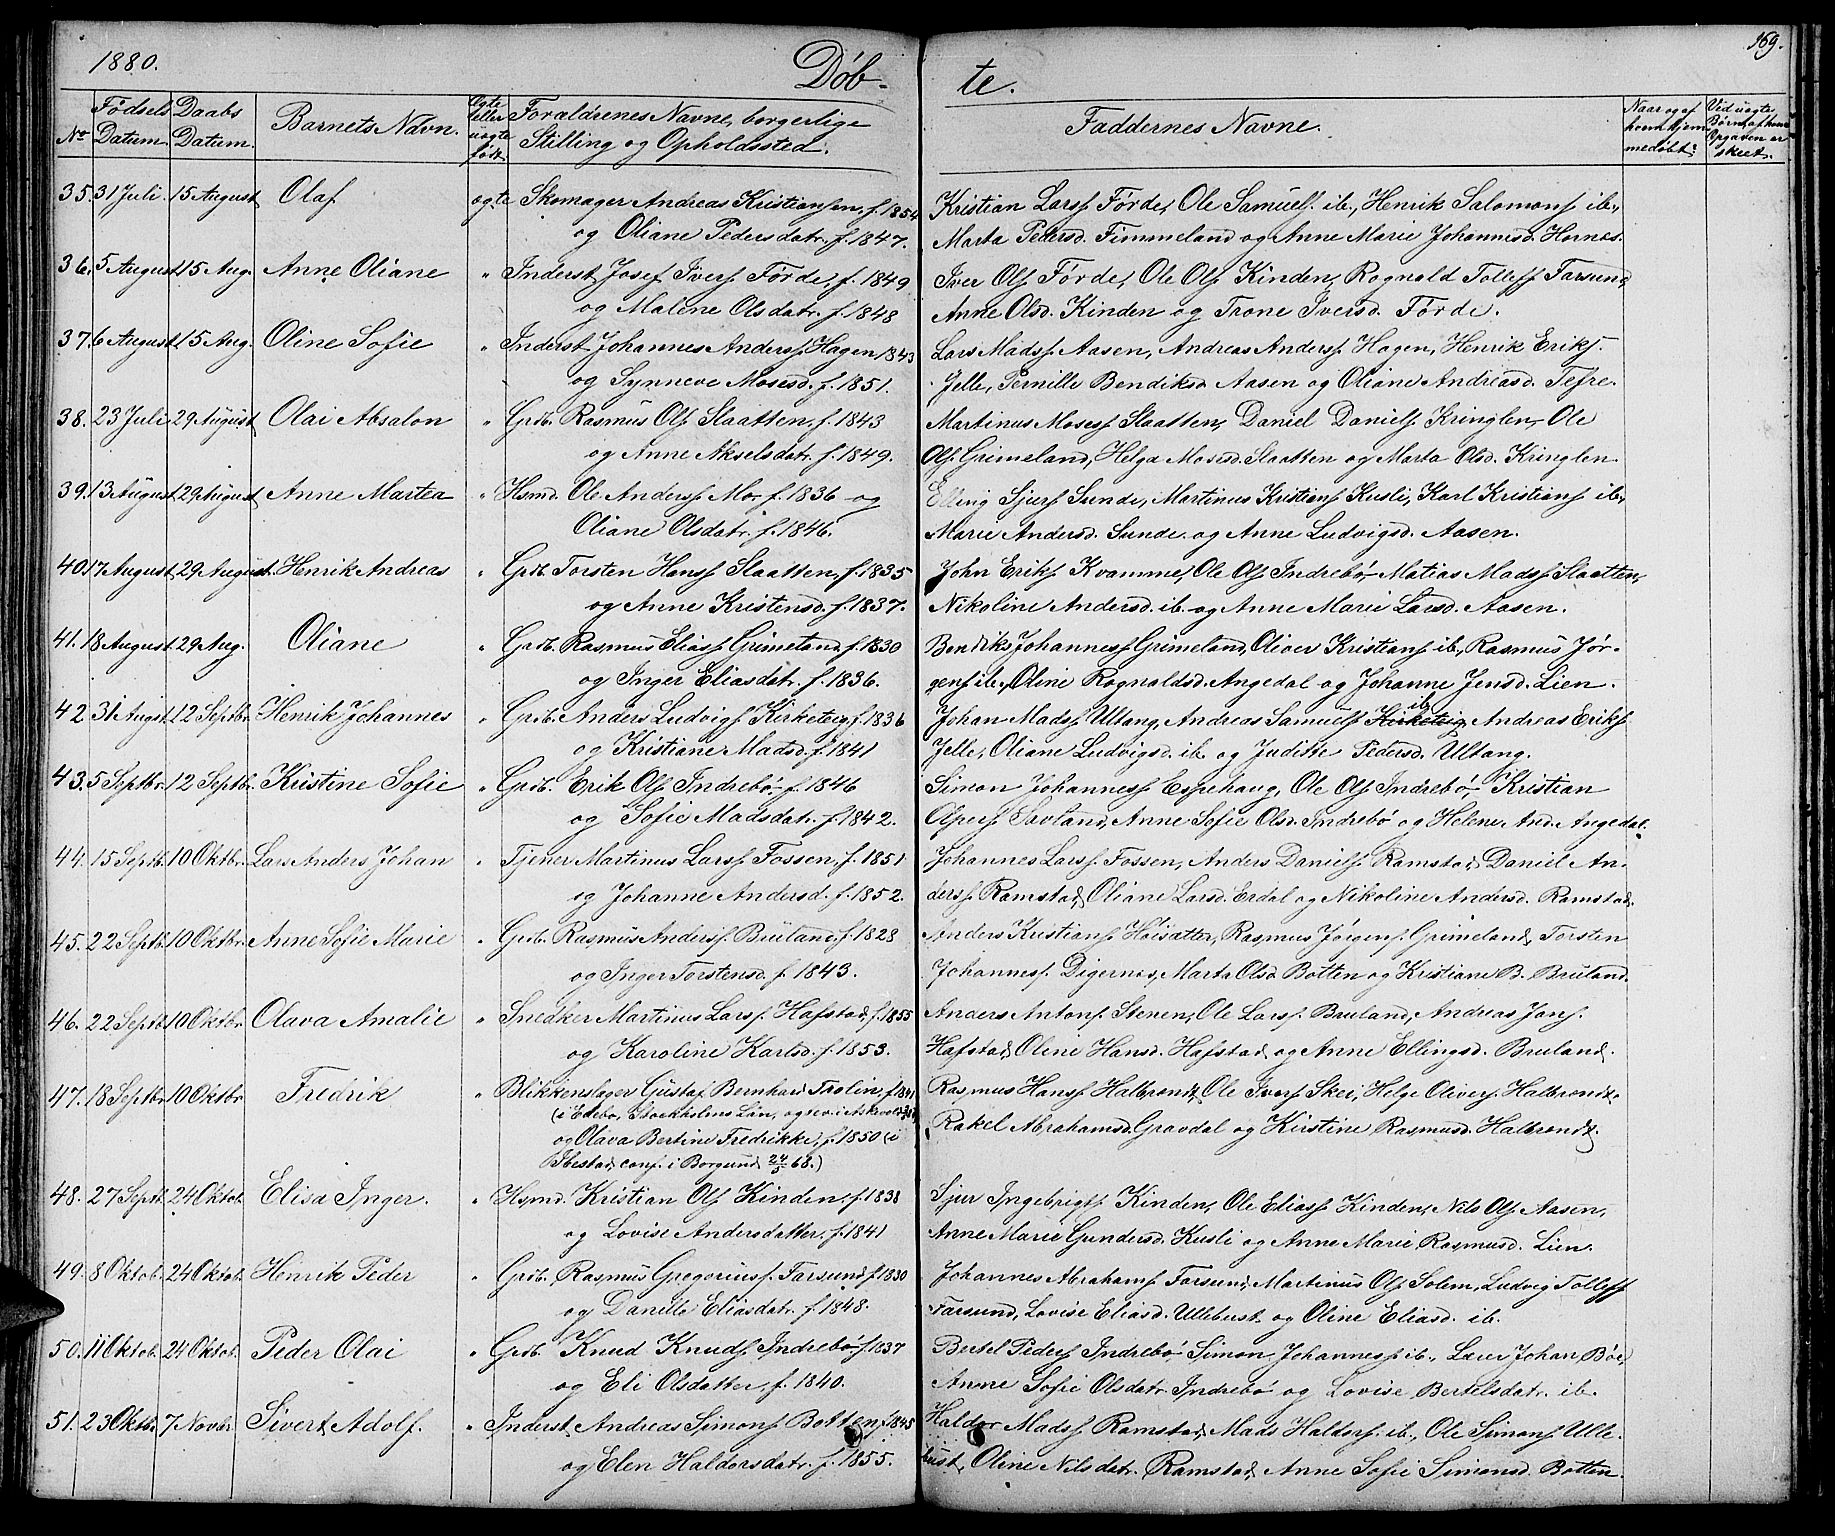 1880.
Døb-
te.
169.
No
Fødsels Datum.
Daabs Datum.
Barnets Navn.
Ægte eller uægte født
Forældrenes Navne, borgerlige
Stilling og Opholdssted.
Faddernes Navne.
Naar og af hvem hjemmedøbt
Ved uægte Børn, af hvem Opgaven er skeet.
35. 31 Juli. 15 August Olaf ægte Skomager Andreas Kristiansen, f. 1854 Kristian Larss Førde, Ole Samuels. ib., Henrik Salomons ib.,
og Oliane Pedersdatr. f. 1847. Marta Pedersd. Fimmeland og Anne Marie Johannesd. Hornes.
36. 5 August 15 Aug. Anne Oliane " Inderst Josef Iverss Førde, f. 1849 Iver Ols Førde, Ole Ols Kinden, Rognald Tollefs Farsund,
og Malene Olsdatr. f. 1848 Anne Olsd. Kinden og Trone Iversd. Førde.
37. 6 August 15 Aug. Oline Sofie " Inderst Johannes Anderss Hagen 1843 Lars Madss. Aasen, Andreas Anderss Hagen, Henrik Eriks
og Synneve Mosesd. f. 1851. Jelle, Pernille Bendiksd. Aasen og Oliane Andreasd. Tefre.
38. 23 Juli 29 August Olai Absalon " Grdb. Rasmus Ols Slaatten, f. 1843 Martinus Mosess Slaatten, Daniel Daniels Kringlen, Ole
og Anne Akselsdatr. f. 1849. Ols. Grimeland, Helga Mosesd. Slaatten og Marta Olsd. Kringlen.
39. 13 August 29 August Anne Martea " Hsmd. Ole Anderss Mo, f. 1836 og Elling Sjurs Sunde, Martinus Kristians Kusli, Karl Kristians ib.,
Oliane Olsdatr. f. 1846. Marie Andersd. Sunde og Anne Ludvigsd. Aasen.
40. 17 August 29 August. Henrik Andreas " Grdb. Torsten Hanss Slaatten, f. 1835 John Eriks Kvamme, Ole Ols Indrebø Matias Madss Slaatten,
og Anne Kristensd. f. 1837. Nikoline Andersd. ib. og Anne Marie Larsd. Aasen.
41. 18 August 29 Aug. Oliane " Grdb. Rasmus Eliass Grimeland f. 1830 Bendiks Johanness Grimeland, Oliver Kristians ib., Rasmus Jør-
og Inger Eliasdatr. f. 1836. gens ib., Oline Rognaldsd. Angedal og Johanne Jensd. Lien.
42 31 Augst 12 Septbr. Henrik Johannes " Grdb. Anders Ludvigs Kirketeig f. 1836 Johan Madss Ultang, Andreas Samuels Kirketeig ib. Andreas Eriks
og Kristiane Madsd. f. 1841 Jelle, Oliane Ludvigsd. ib. og Judithe Pedersd. Ultang.
43. 5 Septbr. 12 Septbr. Kristine Sofie " Grdb. Erik Ols Indrebø f. 1846 Simon Johanness Espehaug, Ole Ols Indrebø Kristian
og Sofie Madsdatr. f. 1842. Savland, Anne Sofie Olsd. Indrebø og Helene And. Angedal.
44. 15 Septb. 10 Oktbr. Lars Anders Johan " Tjener Martinus Larss Fossen, f. 1851 Johannes Larss Fossen, Anders Daniels Ramstad, Daniel An-
og Johanne Andersd. f. 1852. derss Ramstad, Oliane Larsd. Erdal og Nikoline Andersd. Ramstad.
45. 22 Septb. 10 Oktbr. Anne Sofie Marie " Grdb. Rasmus Anderss Bruland, f. 1828 Anders Kristians Høisæter, Rasmus Jørgens Grimeland, Torsten
og Inger Torstensd. f. 1843. Johanness. Digernes, Marta Olsd. Botten og Kristiane B. Bruland.
46. 22 Septb. 10 Oktbr. Olava Amalie " Snedker Martinus Larss Hafstad, f. 1855 Anders Antons Stenen, Ole Larss Bruland, Andreas Jons.
og Karoline Karlsd. f. 1853. Hafstad, Oline Hansd. Hafstad og Anne Ellingsd. Bruland.
47. 18 Septbr. 10 Oktbr Fredrik " Blikkenslager Gustaf Bernhard Trolin, f. 1841 Rasmus Hanss Halbrendt, Ole Iverss Skei, Helge Olivers. Halbrendt,
(i Edebo, Stockholms Län, og rev. i Askvold
og Olava Bertine Fredrikke, f. 1850 (i Rakel Abrahamsd. Gravdal og Kirstine Rasmusd. Halbrendt.
Ibestad, conf. i Borgund 24/5 68.)
48. 27 Septb. 24 Oktob. Elisa Inger. " Hsmd. Kristian Ols Kinden, f. 1838 Sjur Ingebrigts Kinden, Ole Eliass Kinden, Nils Ols Aasen,
og Lovise Andersdatter. f. 1841 Anne Marie Gundersd. Kusli og Anne Marie Rasmusd. Lien.
49. 8 Oktob. 24 Oktob. Henrik Peder " Grdb. Rasmus Gregoriuss. Farsund, f. 1830 Johannes Abrahams Farsund, Martinus Ols Solem, Ludvig Tollefs
og Danille Eliasdatr. f. 1848. Farsund, Lovise Eliasd. Ullebust og Oline Eliasd. ib.
50. 11 Oktob. 24 Oktob. Peder Olai " Grdb. Knud Knuds Indrebø f. 1837 Bertel Peders Indrebø, Simon Johanness. ib., Johan Bøe,
og Eli Olsdatter, f. 1840. Anne Sofie Olsdatr. Indrebø og Lovise Bertelsdatr. ib.
51. 23 Oktbr. 7 Novbr. Sivert Adolf. " Inderst Andreas Simons Botten f. 1845 Haldor Madss Ramstad, Mads Haldors. ib., Ole Simons Ulle-
og Elen Haldorsdatr. f. 1855. bust, Oline Nilsdatr. Ramstad, Anne Sofie Simonsd. Botten.